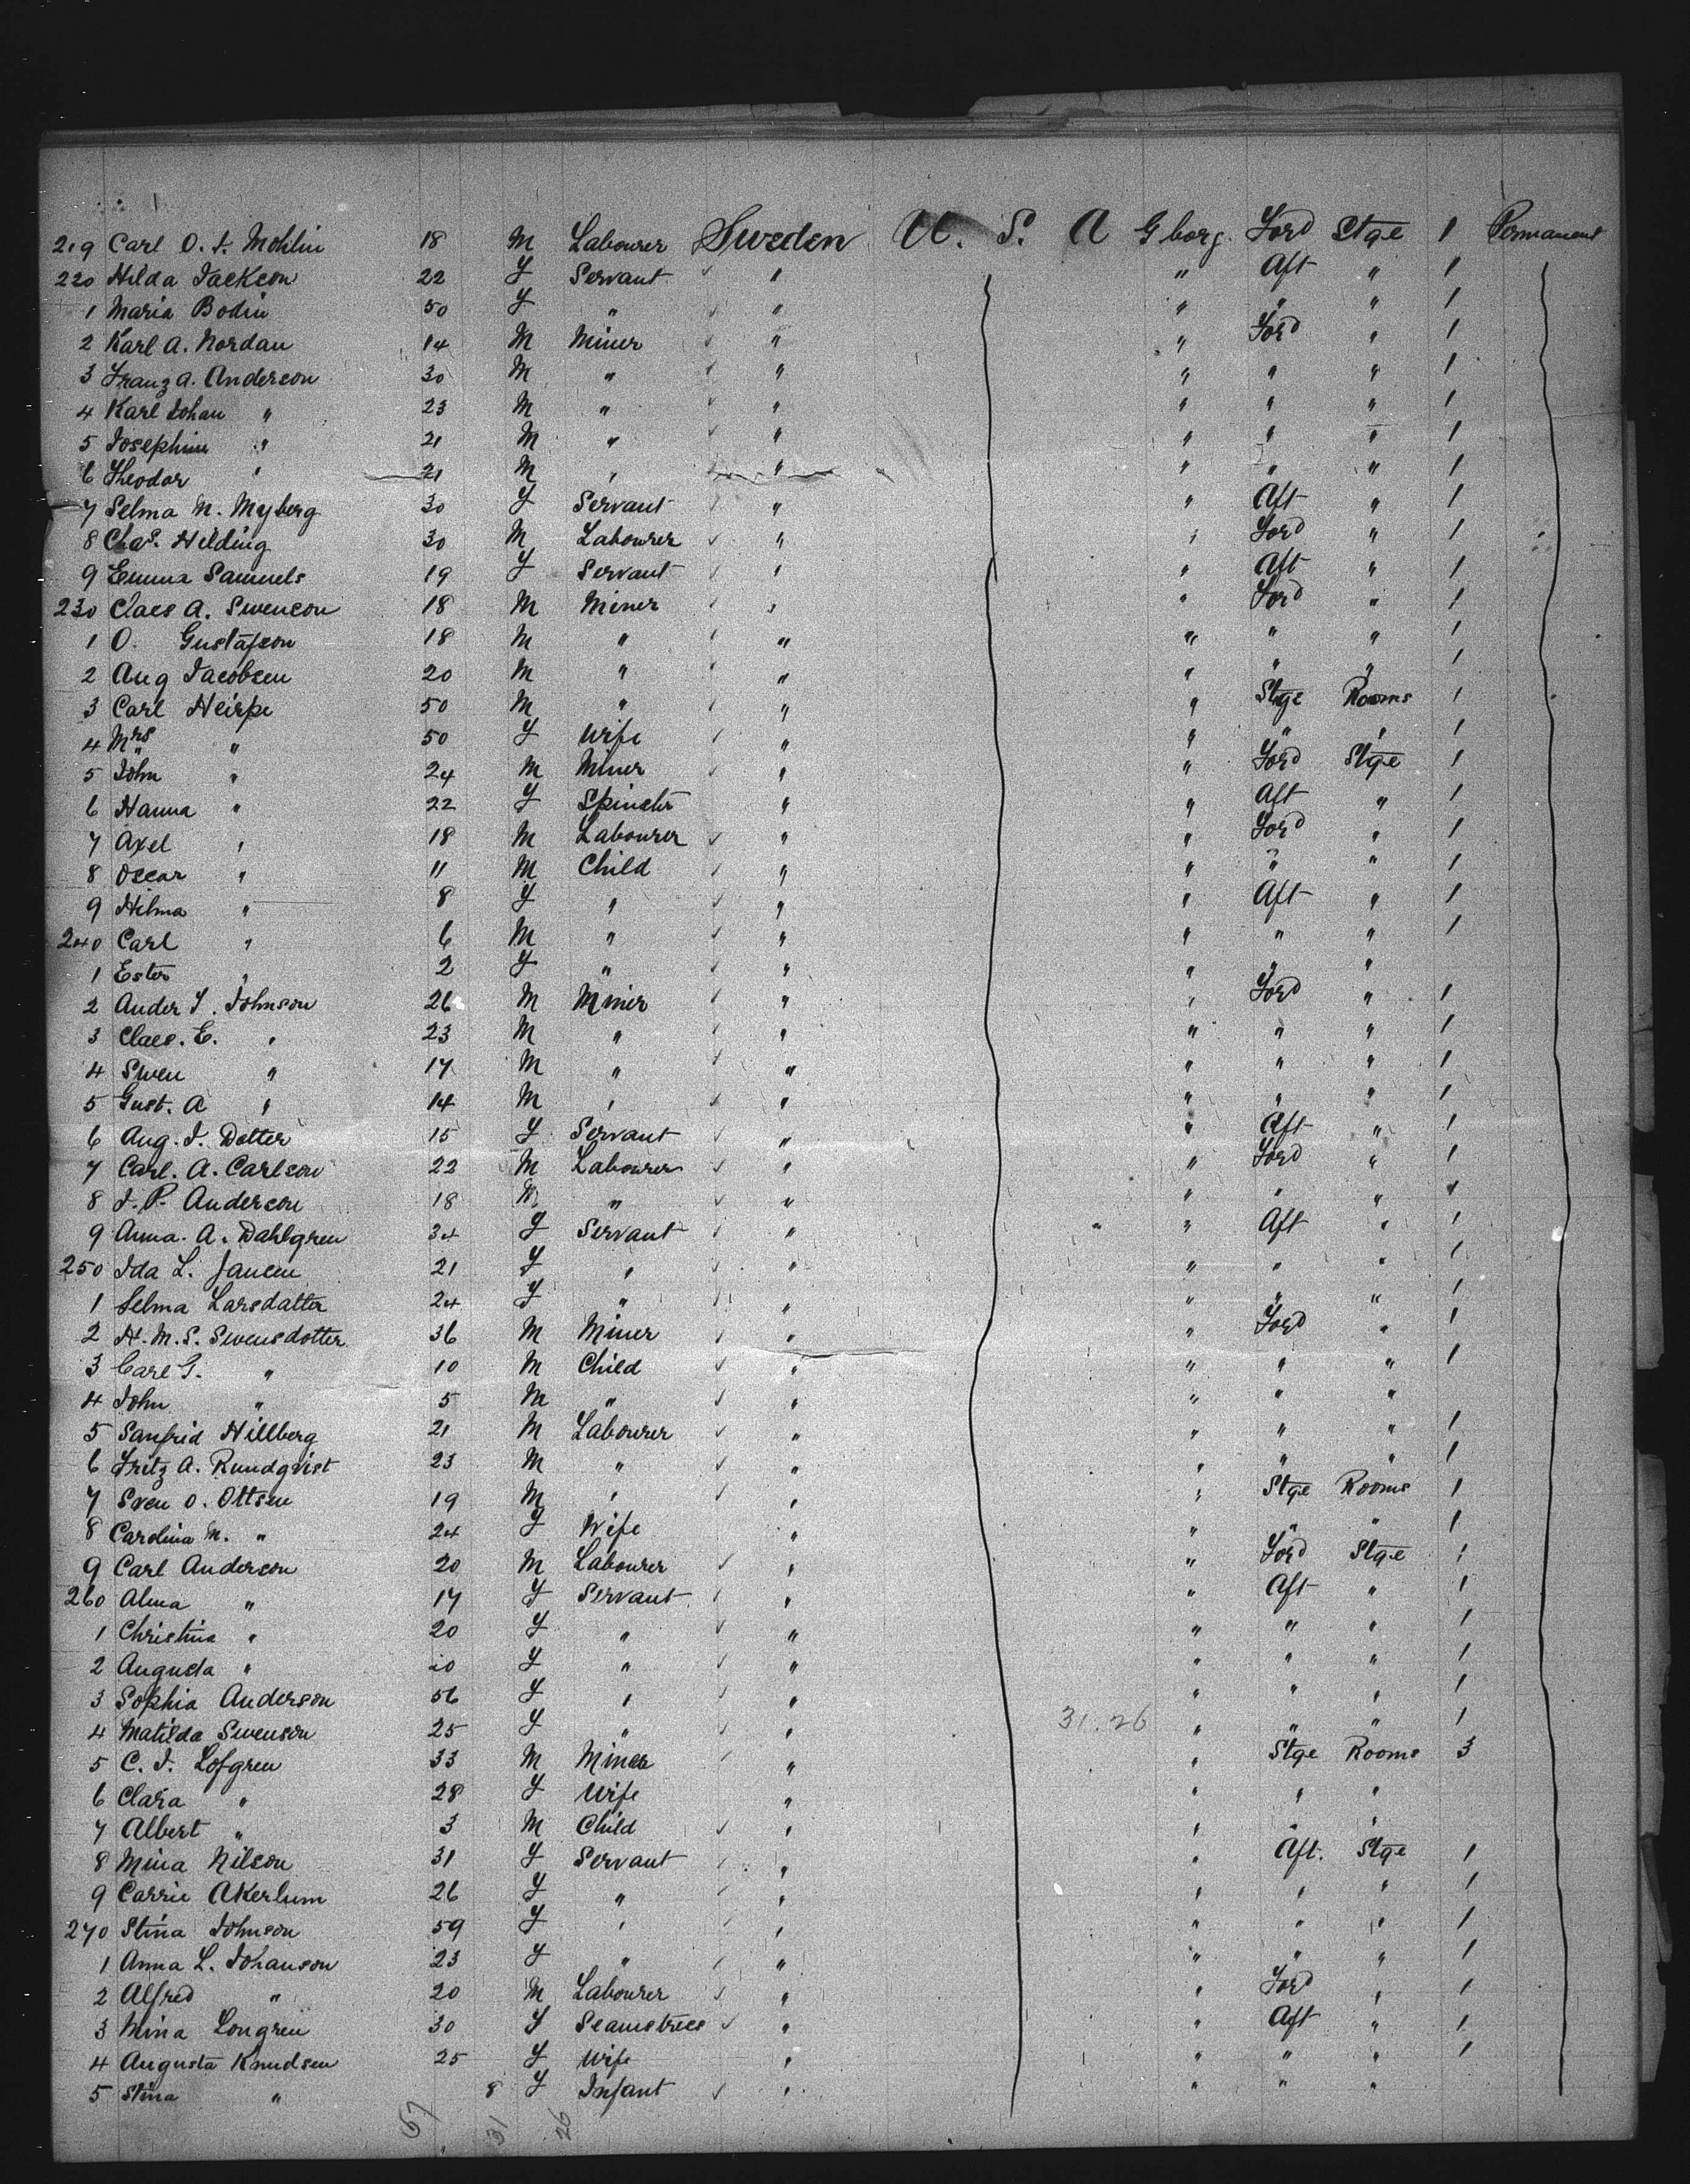 219 Carl O. F. Mohlin 18 M Labourer Sweden U. S. A Gborg. Ford Stge 1 Permanent
220 Hilda Jackson 22 F Servant " " Aft " 1
1 Maria Bodin 50 F " " " " " 1
2 Karl A. Nordan 14 M Miner " " Ford " 1
3 Franz A. Anderson 30 M " " " " " 1
4 Karl Johan " 23 M " " " " " 1
5 Josephine " 21 M " " " " " 1
6 Theodor " 21 M " " " " " 1
7 Selma N. Myberg 30 F Servant " " Aft " 1
8 Chas. Hilding 30 M Labourer " " Ford " 1
9 Emma Samuels 19 F Servant " " Aft " 1
230 Claes A. Swenson 18 M Miner " " Ford " 1
1 O. Gustafson 18 M " " " " " 1
2 Aug Jacobsen 20 M " " " " " 1
3 Carl Heirpe 50 M " " " Stge Rooms 1
4 Mrs " 50 F Wife " " " " 1
5 John " 24 M Miner " " Ford Stge 1
6 Hanna " 22 F Spinster " " Aft " 1
7 Axel " 18 M Labourer " " Ford " 1
8 Oscar " 11 M Child " " " " 1
9 Hilma " 8 F " " " Aft " 1
240 Carl " 6 M " " " " " 1
1 Ester " 2 F " " " " "
2 Ander F. Johnson 26 M Miner " " Ford " 1
3 Claes. E. " 23 M " " " " " 1
4 Swen " 17 M " " " " " 1
5 Gust. A " 14 M " " " " " 1
6 Aug. J. Dotter 15 F Servant " " Aft " 1
7 Carl. A. Carlson 22 M Labourer " " Ford " 1
8 J. P. Anderson 18 M " " " " " 1
9 Anna. A. Dahlgren 34 F Servant " " Aft " 1
250 Ida L. Jansen 21 F " " " " " 1
1 Selma Larsdatter 24 F " " " " " 1
2 H. M. S. Swensdotter 36 M Miner " " Ford " 1
3 Carl G. " 10 M Child " " " " 1
4 John " 5 M " " " " "
5 Sanfrid Hillberg 21 M Labourer " " " " 1
6 Fritz A. Rundqvist 23 M " " " " " 1
7 Sven O. Ottsen 19 M " " " Stge Rooms 1
8 Carolina M. " 24 F Wife " " " " 1
9 Carl Anderson 20 M Labourer " " Ford Stge 1
260 Alma " 17 F Servant " " Aft " 1
1 Christina " 20 F " " " " " 1
2 Augusta " 20 F " " " " " 1
3 Sophia Anderson 56 F " " " " " 1
4 Matilda Swenson 25 F " " 31.26 " " " 1
5 C. J. Lofgren 33 M Miner " " Stge Rooms 3
6 Clara " 28 F Wife " " " "
7 Albert " 3 M Child " " " "
8 Mina Nilson 31 F Servant " " Aft. Stge 1
9 Carrie Akerlum 26 F " " " " " 1
270 Stina Johnson 59 F " " " " " 1
1 Anna L. Johanson 23 F " " " " " 1
2 Alfred " 20 M Labourer " " Ford " 1
3 Mina Longren 30 F Seamstress " " Aft " 1
4 Augusta Knudsen 25 F Wife " " " " 1
5 Stina " 8 F Infant " " " "
67 31 26